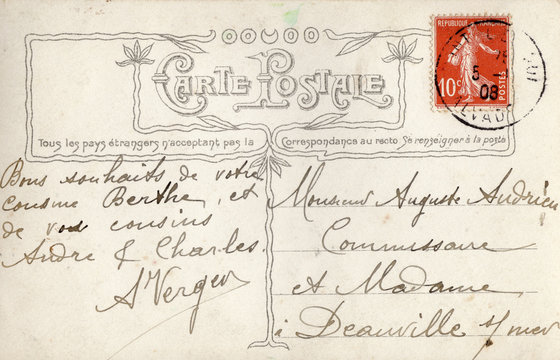 RÉPUBLIQUE FRANÇAISE
10c POSTES
5
08
CARTE POSTALE
Tous les pays étrangers n'acceptant pas la Correspondance au recto Se renseigner à la poste
Bons souhaits de votre
cousine Berthe, et
de vos cousins
Andre & Charles.
A Verger
Monsieur Auguste Andrieu
Commissaire
et Madame
à Deauville s/mer